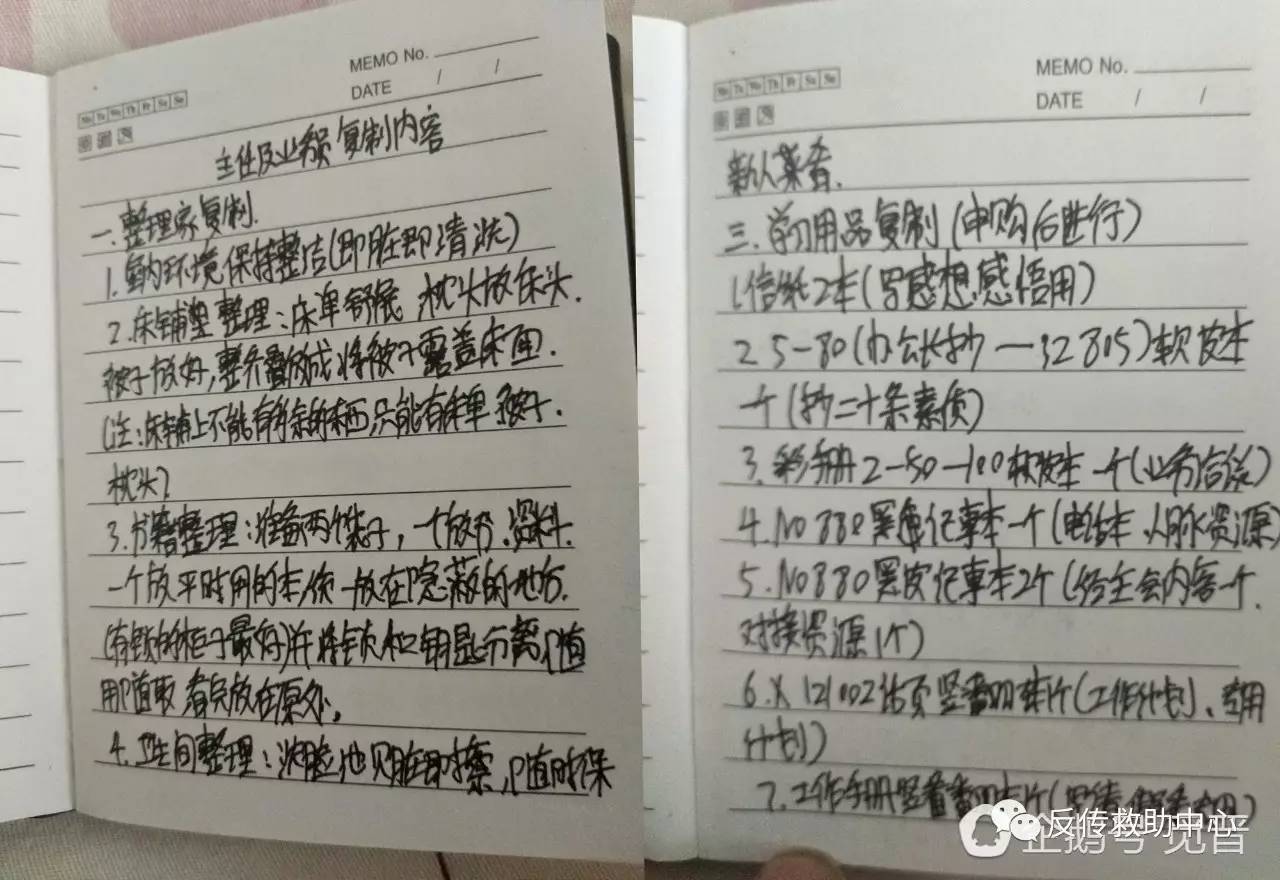 MEMO No.
DATE / /
Mo Tu We Th Fr Sa Su
主任及业务员复制内容
一.整理家复制.
1.室内环境保持整洁(即脏即清洗)
2.床铺整理:床单舒展 枕头放床头.
被子放好,整齐叠放成 将被子覆盖床面.
(注:床铺上不能有多余的东西只能有床单 被子.
枕头)
3.书籍整理:准备两个架子,一个放书.资料.
一个放平时用的本/依 放在隐蔽的地方.
(有锁的柜子最好)并将锁和钥匙分离,随
用随取 看完放在原处,
4.卫生间整理:洗脸池 见脏即擦,随时保
MEMO No.
DATE / /
Mo Tu We Th Fr Sa Su
新人菜肴.
三.学习用品复制(申购后进行)
1.信纸2本(写感想感悟用)
2 5-80(办公长抄一32805)软皮本
一个(抄二十条素质)
3. 手册2-50-100软皮本一个(业务洽谈)
4.NO 880黑皮记事本一个(电话本、人脉资源)
5.NO880黑皮记事本2个(经主会内容一个.
对接资源1个)
6.X 121002活页竖番 本1个(工作计划、专用
计划)
7.工作手册竖着番 本1个
反传救助中心
企鹅号 觅晋